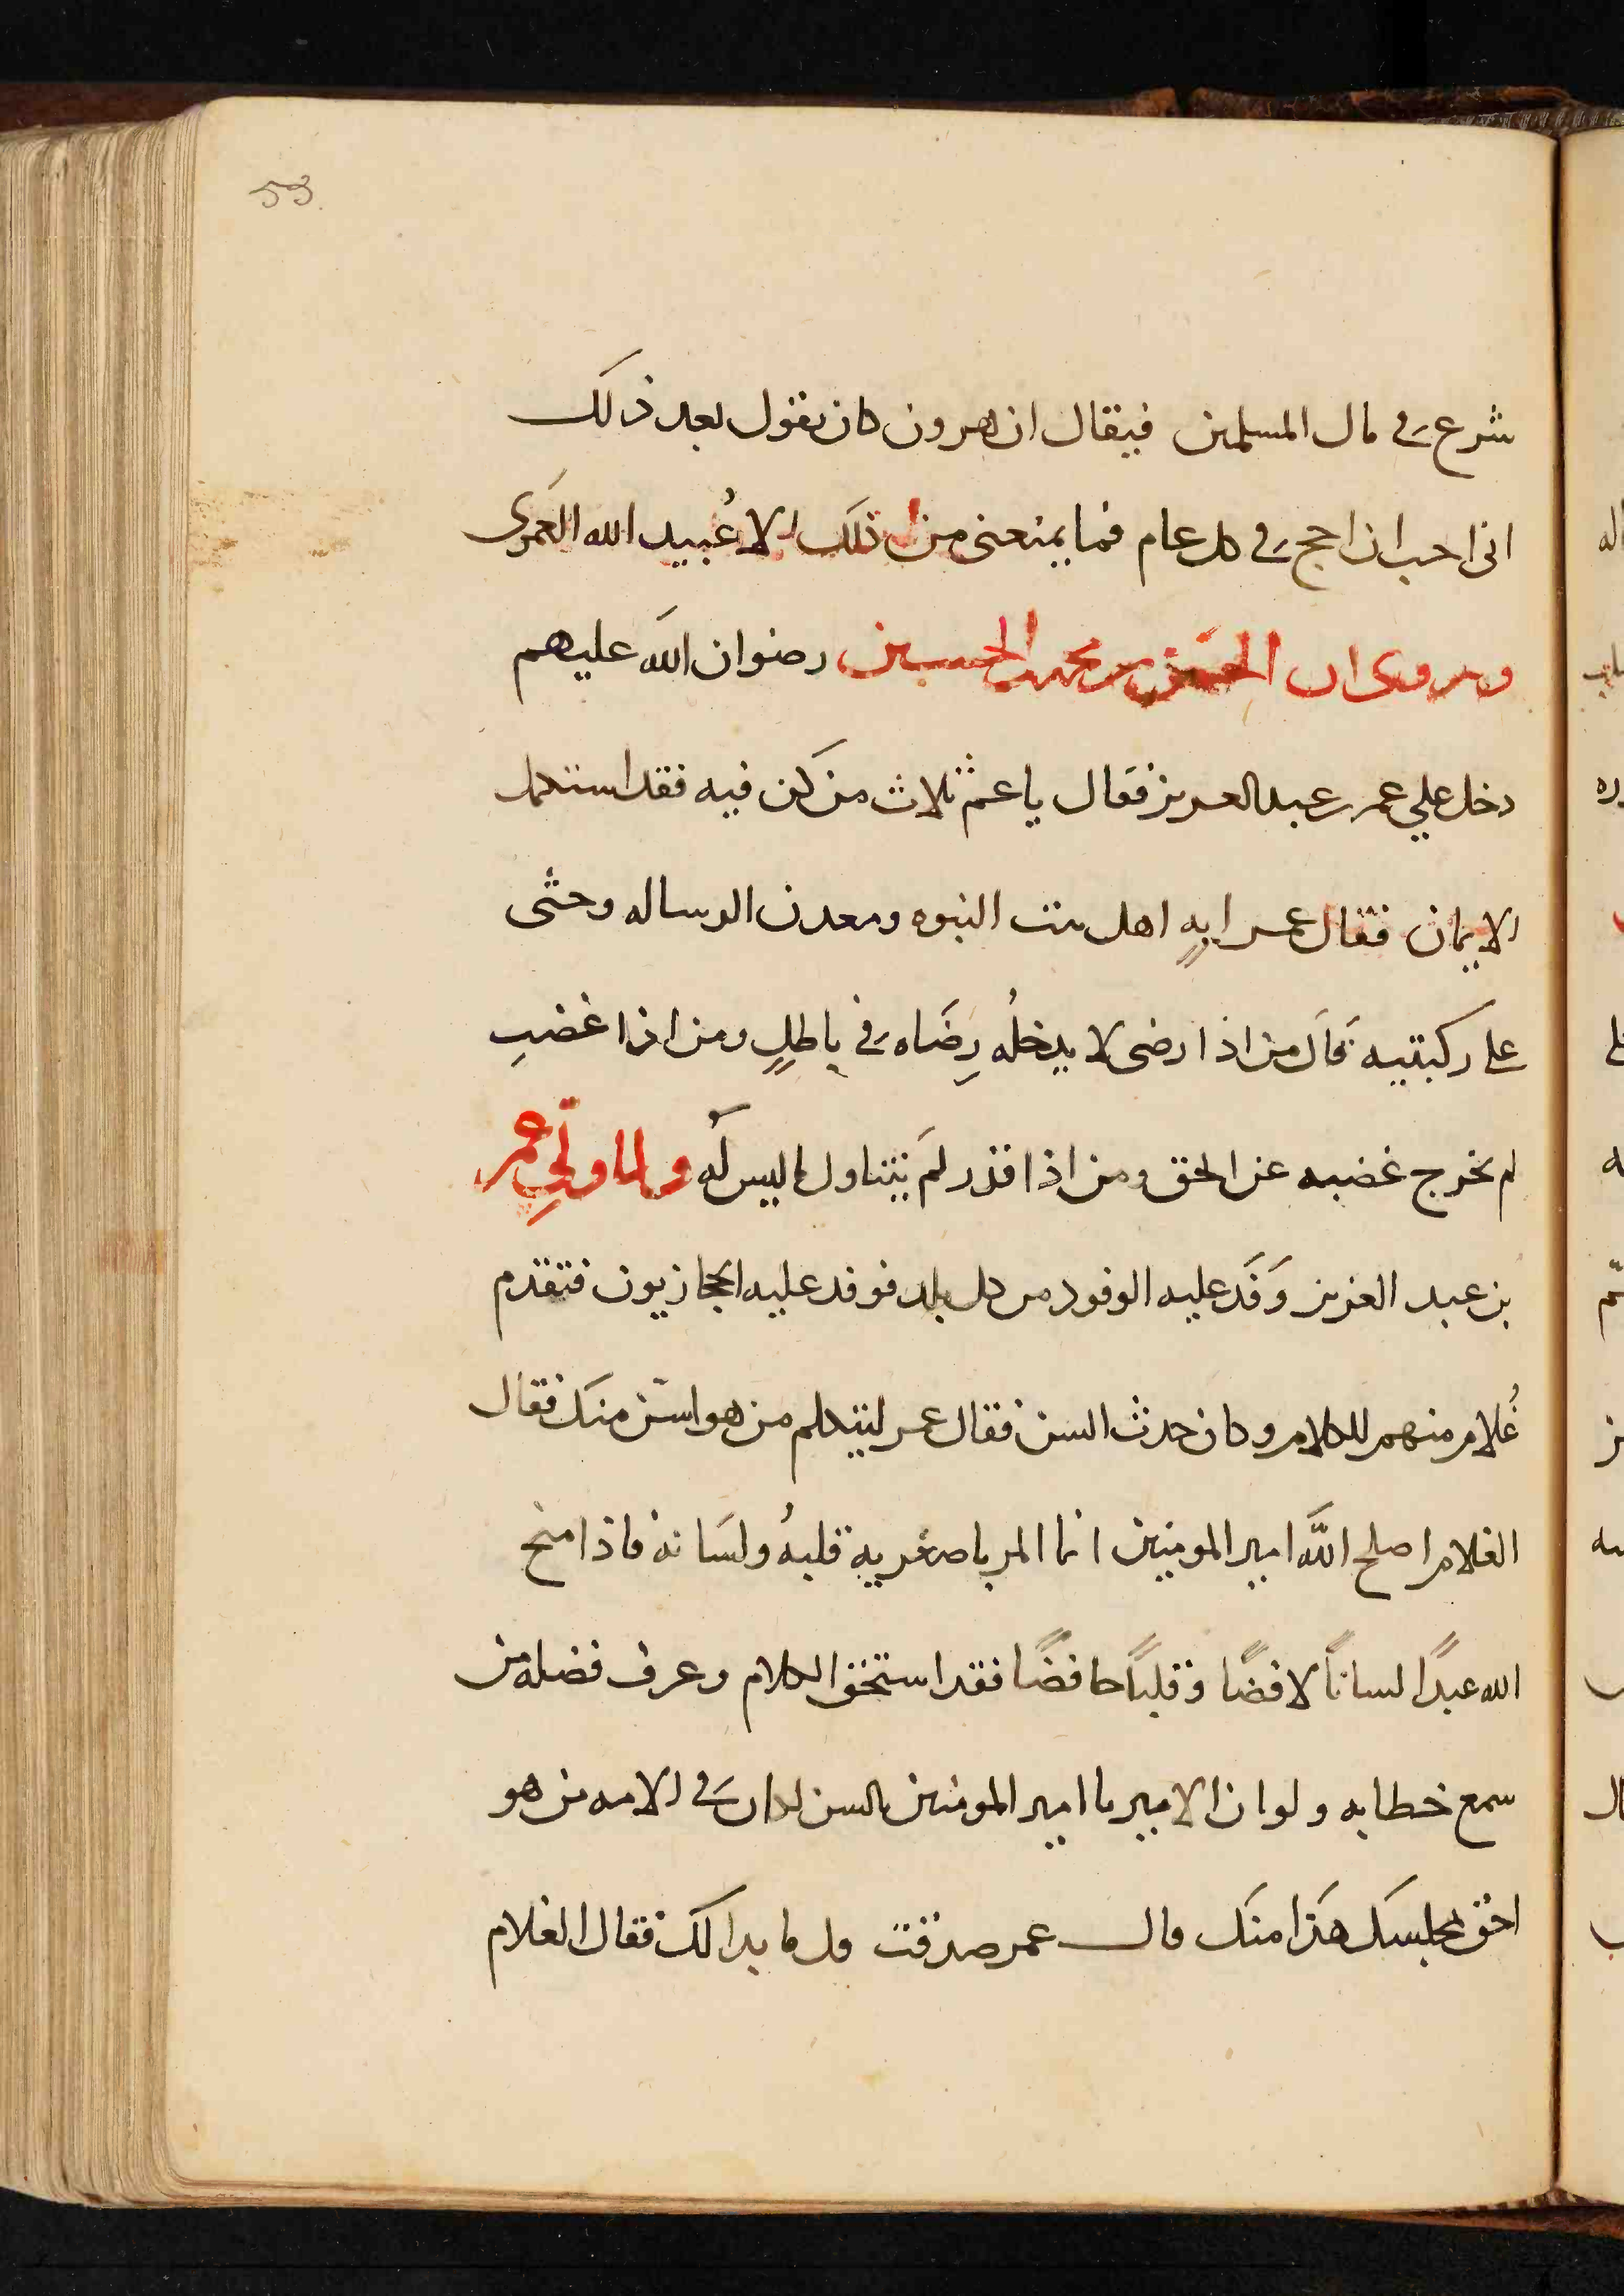 53
شرع في مال المسلمين فيقال ان هرون كان يقول بعد ذلك
انى احب ان احج في كل عام فما يمنعنى من ذلك الا عُبيد الله العَمرى
ويروى ان الحسَن بن محمد بن الحسين رضوان الله عليهم
دخل علي عمر بن عبد العزيز فقال يا عم ثلاث من كن فيه فقد استكمل
الايمان فقال عمر ايهٍ اهل بيت النبوه ومعدن الرساله وحثى
على ركبتيه قال من اذا رضى لا يدخلُه رِضَاه في باطلٍ ومن اذا غضبِ
لم يخرج غضبه عن الحق ومن اذا قدر لمَ يتناول ما ليس لَه ولما ولّيِ عمر
بن عبد العزيز وَفَد عليه الوفود من كل بلد فوفد عليه الحجازيون فتقدم
غُلام منهم للكلام وكان حدث السن فقال عمر ليتكلم من هو اسَن منك فقال
الغلام اصلح الله امير المومنين انما المر باصغريه قلبهُ ولسَانه فاذا منح
الله عبدًا لساناً لافضًا وقلباً حافضًا فقد استحق الكلام وعرف فضله من
سمع خطابه ولو ان الامير يا امير المومنين بالسن لكان في الامه من هو
احق بمجلسك هَذا منك قال عمر صدقت قل ما بدا لك فقال الغلام